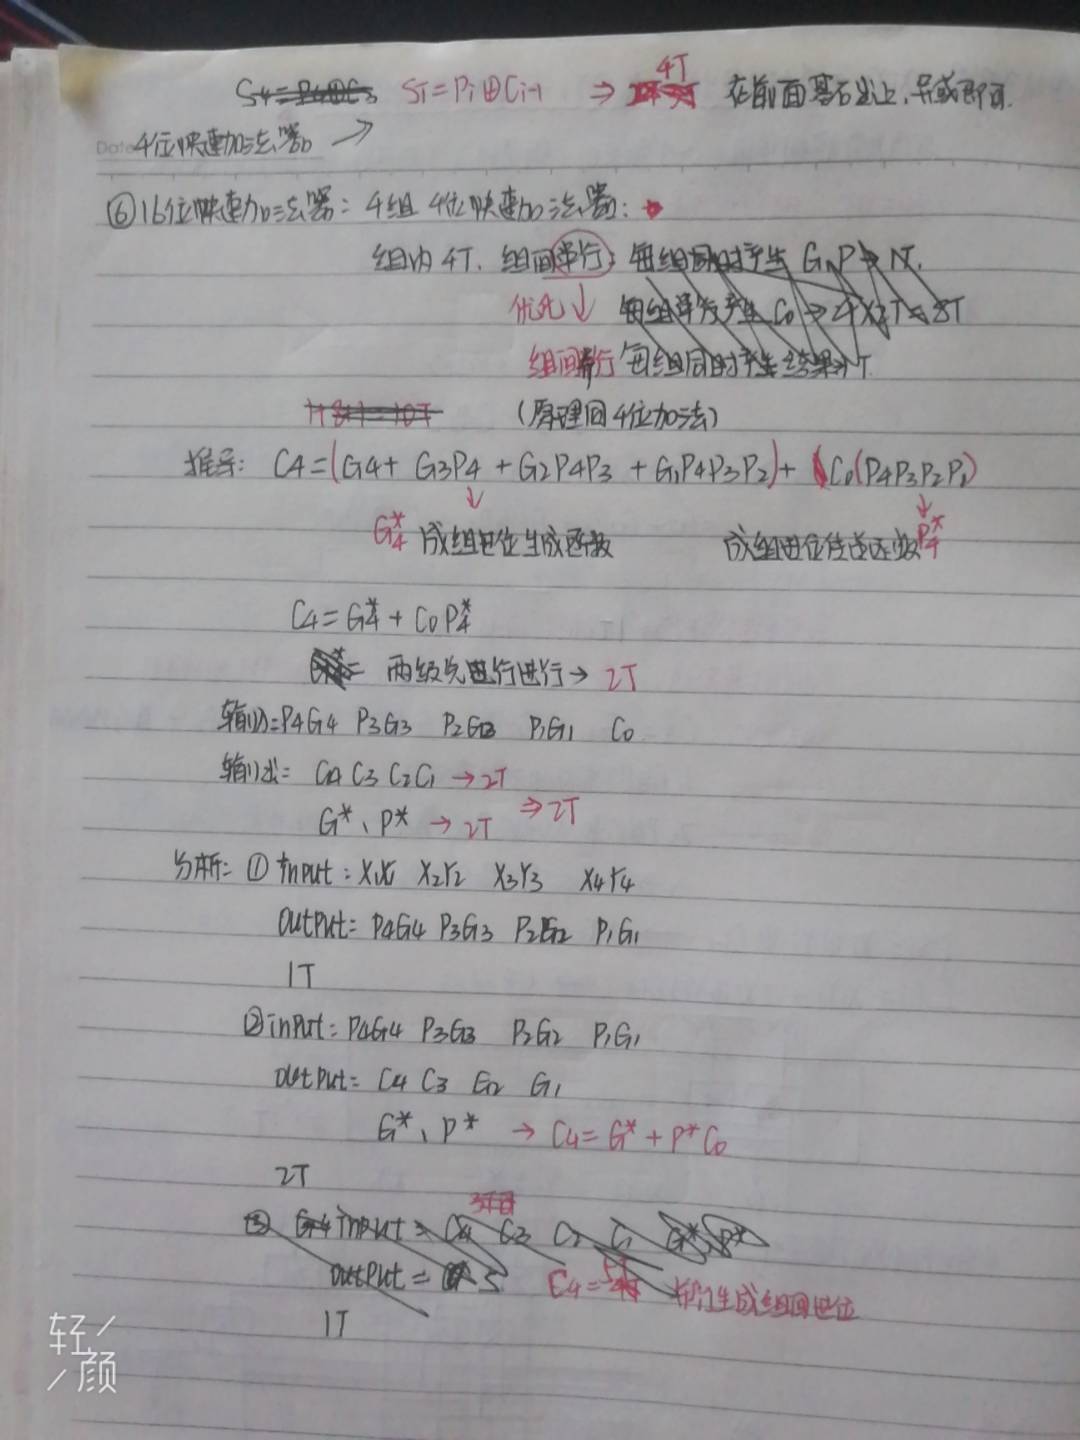 S4=P4⊕C3 Si=Pi⊕Ci-1 ⇒ 4T 在前面基础上,异或即可.
Date 4位快速加法器 →
⑥16位快速加法器: 4组 4位快速加法器:
组内 4T. 组间串行: 每组同时产生 G、P → 1T.
优化↓ 每组串行产生 C0 → 4×2T=8T
组间并行 每组同时产生结果 1T
1+8+1=10T (原理同4位加法)
推导: C4=(G4+ G3P4 + G2P4P3 + G1P4P3P2)+ C0(P4P3P2P1)
↓ ↓
G4* 成组进位生成函数 成组进位传递函数P4*
C4=G4* + C0P4*
两级先进行进行→ 2T
输入=P4G4 P3G3 P2G2 P1G1 C0
输出= C4 C3 C2C1 →2T
⇒2T
G*、P* →2T
分析: ① input: X1Y1 X2Y2 X3Y3 X4Y4
output= P4G4 P3G3 P2G2 P1G1
1T
②input= P4G4 P3G3 P2G2 P1G1
output= C4 C3 G2 G1
G*、P* → C4=G*+P*C0
2T
③ input= C4 C3 C2 C1 G*、P*
output= S C4=5T 生成组间进位
1T
轻
颜